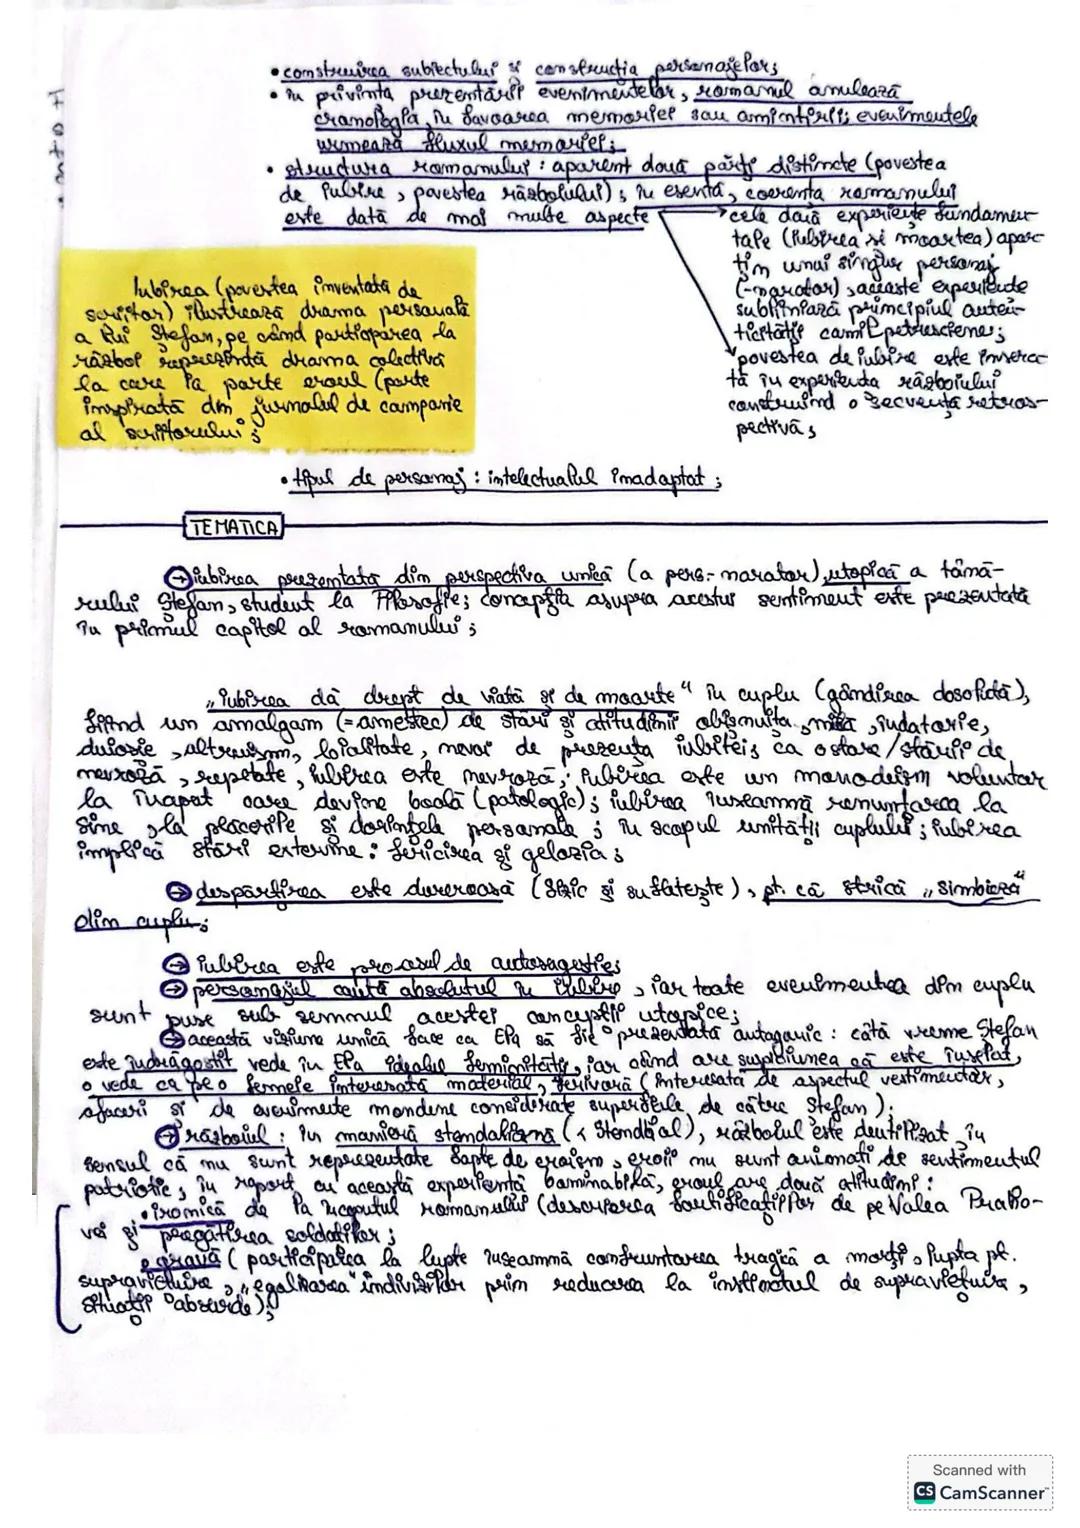 • construirea subiectului și construcția personajelor;
• în privința prezentării evenimentelor, romanul anulează
cronologia, în favoarea memoriei sau amintirii; evenimentele
urmează fluxul memoriei;
• structura romanului: aparent două părți distincte (povestea
de iubire, povestea războiului); în esență, coerența romanului
este dată de mai multe aspecte
cele două experiențe fundamen-
tale (iubirea și moartea) apar-
țin unui singur personaj
(-narator), aceaste experiențe
subliniază principiul auten-
ticității camilpetresciene;
povestea de iubire este insera-
tă în experiența războiului
construind o secvență retros-
pectivă;
Iubirea (povestea inventată de
scriitor) ilustrează drama personală
a lui Ștefan, pe când participarea la
război reprezintă drama colectivă
la care ia parte eroul (parte
inspirată din jurnalul de campanie
al scriitorului;
• tipul de personaj: intelectualul inadaptat;
TEMATICA
→ iubirea prezentată din perspectiva unică (a pers.-narator), utopică a tână-
rului Ștefan, student la Filosofie; concepția asupra acestui sentiment este prezentată
în primul capitol al romanului;
„iubirea dă drept de viață și de moarte" în cuplu (gândirea
fiind un amalgam (=amestec) de stări și atitudini obișnuita milă, îndatorie,
duioșie, altruism, loialitate, nevoi de prezența iubitei; ca o stare/stării de
nevroză, repetate, iubirea este nevroză; iubirea este un monodeism voluntar
la început care devine boală (patologic); iubirea înseamnă renunțarea la
sine, la plăcerile și dorințele personale; în scopul unității cuplului; iubirea
implică stări extreme: fericirea și gelozia;
→ despărțirea este dureroasă (fizic și sufletește), pt. că strică „simbioza"
din cuplu;
→ iubirea este procesul de autosugestie;
→ personajul caută absolutul în iubire, iar toate evenimentea din cuplu
sunt puse sub semnul acestei concepții utopice;
→ această viziune unică face ca Ela să fie prezentată antagonic: câtă vreme Ștefan
este îndrăgostit vede în Ela idealul feminității, iar când are suspiciunea că este înșelat,
o vede ca pe o femeie interesată material, frivolă (interesată de aspectul vestimentar,
afaceri și de evenimente mondene considerate superficile de către Ștefan);
→ războiul: în manieră stendhaliană (< Stendhal), războiul este demitizat, în
sensul că nu sunt reprezentate fapte de eroism, eroii nu sunt animați de sentimentul
patriotic; în raport cu această experiență abominabilă, eroul are două atitudini:
• ironică de la începutul romanului (descrierea fortificațiilor de pe Valea Praho-
vei și pregătirea soldaților;
• gravă (participarea la lupte înseamnă confruntarea tragică a morții, lupta pt.
supraviețuire, „egalizarea" indivizilor prin reducerea la instinctul de supraviețuire,
situații absurde);
Scanned with
CS CamScanner